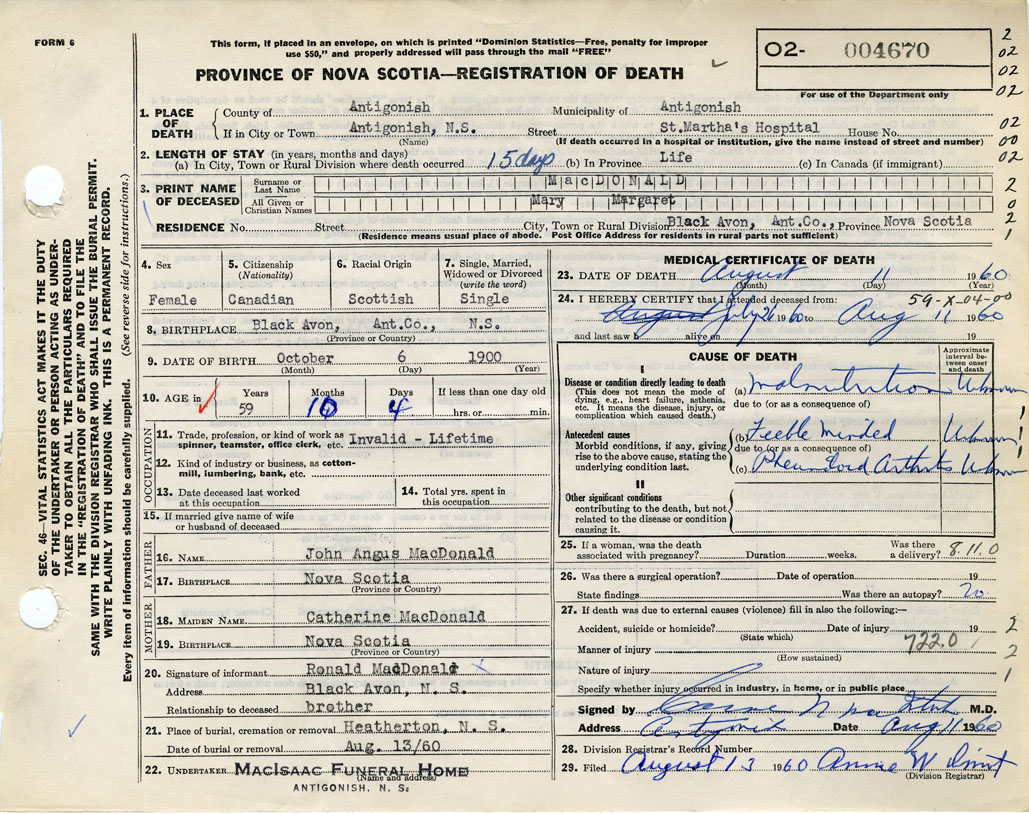 FORM 6
This form, if placed in an envelope, on which is printed "Dominion Statistics—Free, penalty for improper
use $50," and properly addressed will pass through the mail "FREE"
PROVINCE OF NOVA SCOTIA—REGISTRATION OF DEATH
02- 004670
For use of the Department only
2
02
02
02
1. PLACE OF DEATH
County of Antigonish Municipality of Antigonish
If in City or Town Antigonish, N.S. Street St.Martha's Hospital House No.
(Name) (If death occurred in a hospital or institution, give the name instead of street and number)
02
00
02
2. LENGTH OF STAY (in years, months and days)
(a) In City, Town or Rural Division where death occurred 15 days (b) In Province Life (c) In Canada (if immigrant)
3. PRINT NAME OF DECEASED
Surname or Last Name MacDONALD
All Given or Christian Names Mary Margaret
2
0
2
1
RESIDENCE No. Street City, Town or Rural Division Black Avon, Ant.Co., Province Nova Scotia
(Residence means usual place of abode. Post Office Address for residents in rural parts not sufficient)
SEC. 46—VITAL STATISTICS ACT MAKES IT THE DUTY
OF THE UNDERTAKER OR PERSON ACTING AS UNDER-
TAKER TO OBTAIN ALL THE PARTICULARS REQUIRED
IN THE "REGISTRATION OF DEATH" AND TO FILE THE
SAME WITH THE DIVISION REGISTRAR WHO SHALL ISSUE THE BURIAL PERMIT.
WRITE PLAINLY WITH UNFADING INK. THIS IS A PERMANENT RECORD.
Every item of information should be carefully supplied. (See reverse side for instructions.)
4. Sex
Female
5. Citizenship
(Nationality)
Canadian
6. Racial Origin
Scottish
7. Single, Married,
Widowed or Divorced
(write the word)
Single
8. BIRTHPLACE Black Avon, Ant.Co., N.S.
(Province or Country)
9. DATE OF BIRTH October 6 1900
(Month) (Day) (Year)
10. AGE in Years Months Days If less than one day old
59 10 4 hrs. or min.
OCCUPATION
11. Trade, profession, or kind of work as
spinner, teamster, office clerk, etc. Invalid - Lifetime
12. Kind of industry or business, as cotton-
mill, lumbering, bank, etc.
13. Date deceased last worked
at this occupation
14. Total yrs. spent in
this occupation
15. If married give name of wife
or husband of deceased
FATHER
16. NAME John Angus MacDonald
17. BIRTHPLACE Nova Scotia
(Province or Country)
MOTHER
18. MAIDEN NAME Catherine MacDonald
19. BIRTHPLACE Nova Scotia
(Province or Country)
20. Signature of informant Ronald MacDonald x
Address Black Avon, N. S.
Relationship to deceased brother
21. Place of burial, cremation or removal Heatherton, N. S.
Date of burial or removal Aug. 13/60
22. UNDERTAKER MACISAAC FUNERAL HOME
(Name and address)
ANTIGONISH. N. S.
MEDICAL CERTIFICATE OF DEATH
23. DATE OF DEATH August 11 1960
(Month) (Day) (Year)
59-X-04-00
24. I HEREBY CERTIFY that I attended deceased from:
August July 26 1960 to Aug 11 1960
and last saw h alive on 19
CAUSE OF DEATH
Approximate
interval be-
tween onset
and death
I
Disease or condition directly leading to death
(This does not mean the mode of
dying, e.g., heart failure, asthenia,
etc. It means the disease, injury, or
complication which caused death.)
(a) Malnutrition Unknown
due to (or as a consequence of)
Antecedent causes
Morbid conditions, if any, giving
rise to the above cause, stating the
underlying condition last.
(b) Feeble Minded Unknown
due to (or as a consequence of)
(c) Rheumatoid Arthritis Unknown
1
1
1
II
Other significant conditions
contributing to the death, but not
related to the disease or condition
causing it.
25. If a woman, was the death
associated with pregnancy? Duration weeks. Was there
a delivery? 8.11.0
26. Was there a surgical operation? Date of operation 19
State findings Was there an autopsy? no
27. If death was due to external causes (violence) fill in also the following:—
Accident, suicide or homicide? Date of injury 19
(State which)
722.0
Manner of injury
(How sustained)
Nature of injury
2
2
1
Specify whether injury occurred in industry, in home, or in public place
Signed by M.D.
Address Antigonish Date Aug 11 1960
28. Division Registrar's Record Number
29. Filed August 13 1960 Annie W
(Division Registrar)